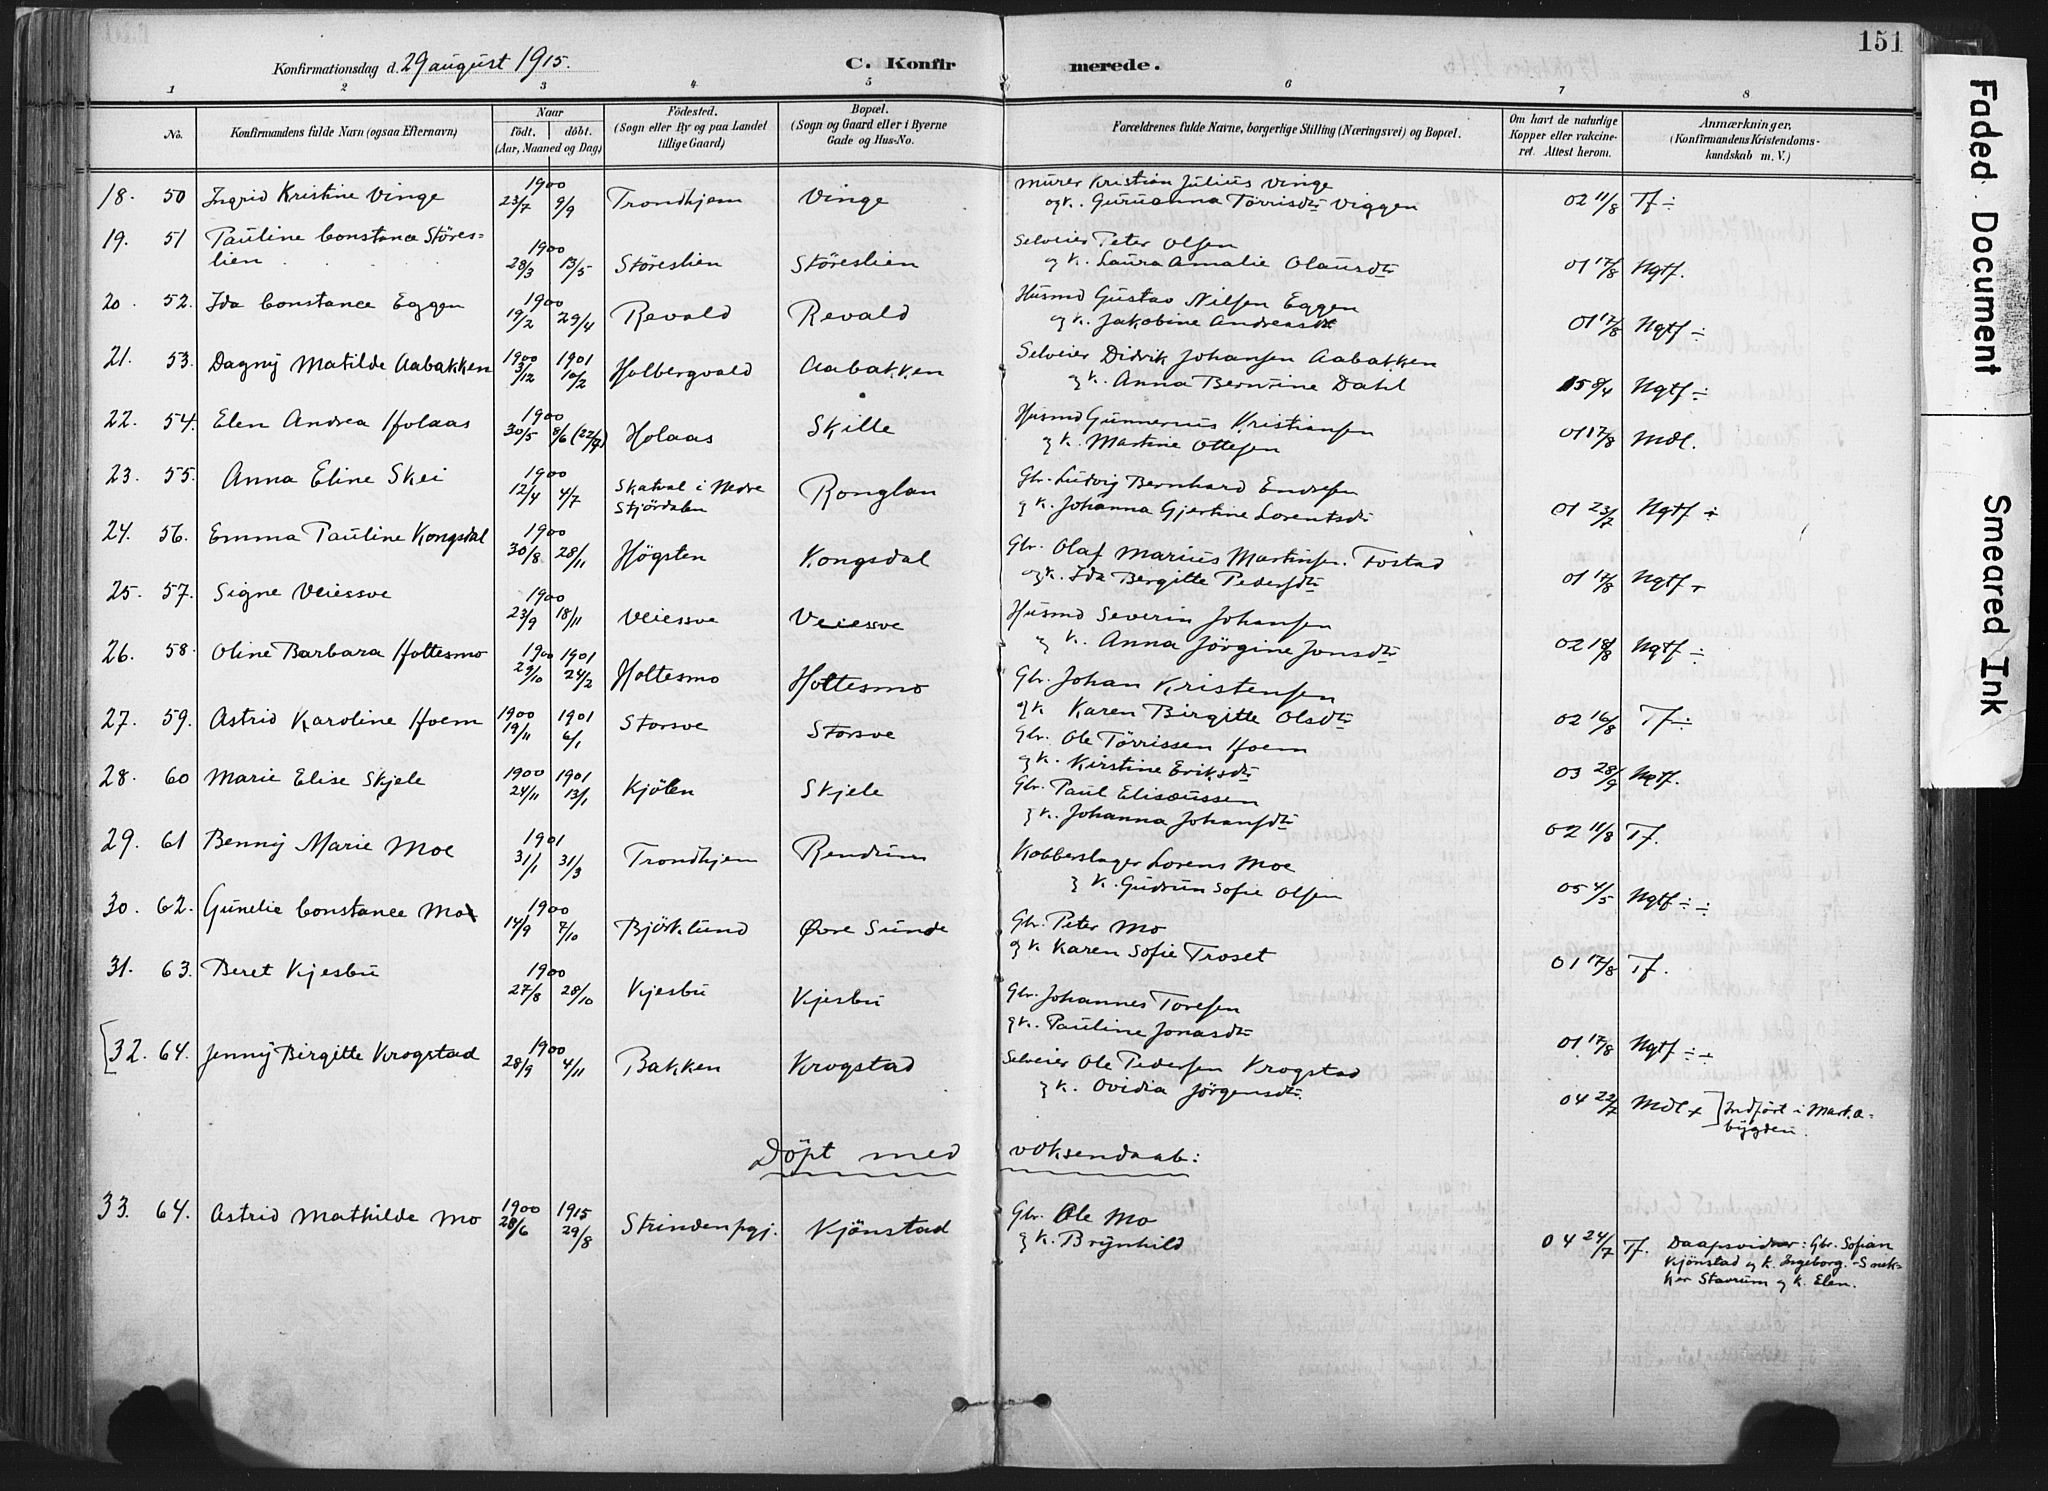 151
Konfirmationsdag d. 29 august 1915.
C. Konfirmerede.
1 2 3 4 5 6 7 8
No. Konfirmandens fulde Navn (ogsaa Efternavn)
Naar
født. døbt.
(Aar, Maaned og Dag)
Fødested.
(Sogn eller By og paa Landet
tillige Gaard)
Bopæl.
(Sogn og Gaard eller i Byerne
Gade og Hus-No.
Forældrenes fulde Navne, borgerlige Stilling (Næringsvei) og Bopæl.
Om havt de naturlige
Kopper eller vakcine-
ret. Attest herom.
Anmærkninger.
(Konfirmandens Kristendoms-
kundskab m. V.)
18. 50 Ingrid Kristine Vinge 1900 23/7 9/9 Trondhjem Vinge Murer Kristian Julius Vinge
og k. Guruanna Tørrisdtr Viggen 02 11/8 Tf ÷
19. 51 Pauline Constance Støres-
lien 1900 28/3 13/5 Støreslien Støreslien Selveier Peter Olsen
og k. Laura Amalie Olausdtr 01 17/8 Ngtf.
20 52. Ida Constance Eggen 1900 19/2 29/4 Revald Revald Husmd Gustav Nilsen Eggen
og k. Jakobine Andreasdtr 01 17/8 Ngtf ÷
21. 53. Dagny Matilde Aabakken 1900 3/12 1901 10/2 Holbergvald Aabakken Selveier Didrik Johansen Aabakken
og k. Anna Berntine Dahl 15 8/4 Ngtf ÷
22. 54. Elen Andrea Holaas 1900 30/5 8/6 (22/7) Holaas Skille Husmd Gunnerius Kristiansen
og k. Martine Ottesen 01 17/8 Mdl.
23. 55. Anna Eline Skei 1900 12/4 4/7 Skatval i Nedre
Stjørdalen Ronglan Gbr. Ludvig Bernhard Endresen
og k. Johanna Gjertine Lorentsdtr 01 23/7 Ngtf +
24. 56. Emma Pauline Kongsdal 1900 30/8 28/11 Høgsten Kongsdal Gbr. Olaf Marius Martinsen Fostad
og k. Ida Bergitte Pedersdtr 01 17/8 Ngtf +
25. 57. Signe Veiessve 1900 23/9 18/11 Veiessve Veiessve Husmd Severin Johansen
og k. Anna Jørgine Jonsdtr 02 18/8 Ngtf ÷
26. 58. Oline Barbara Holtesmo 1900 29/10 1901 24/2 Holtesmo Holtesmo Gbr. Johan Kristensen
og k Karen Birgitte Olsdtr 02 16/8 Tf ÷
27. 59. Astrid Karoline Hoem 1900 19/11 1901 6/1 Storsve Storsve Gbr. Ole Tørrissen Hoem
og k. Kirstine Eriksdtr 03 28/9 Ngtf.
28. 60 Marie Elise Skjele 1900 24/11 1901 13/1 Kjølen Skjele Gbr. Paul Elisæussen
og k. Johanna Johansdtr 02 11/8 Tf.
29. 61 Benny Marie Moe 1901 31/1 31/3 Trondhjem Rendum Kobberslager Lorens Moe
og k. Gudrun Sofie Olsen 05 4/5 Ngtf ÷ ÷
30. 62. Gunelie Constance Mo 1900 14/9 7/10 Bjørklund Øvre Sunde Gbr. Peter Mo
og k Karen Sofie Troset 01 17/8 Tf.
31. 63. Beret Kjesbu 1900 27/8 28/10 Kjesbu Kjesbu Gbr. Johannes Toresen
og k. Pauline Jonasdtr 01 17/8 Ngtf ÷ ÷
[32. 64. Jenny Birgitte Krogstad 1900 28/9 4/11 Bakken Krogstad Selveier Ole Pedersen Krogstad
og k. Ovidia Jørgensdtr. 04 22/7 Mdl + ] Indført i Marka-
bygden.
Döpt med voksendaab:
33. 64. Astrid Mathilde Mo 1900 28/6 1915 29/8 Strinden pgj. Kjønstad Gbr. Ole Mo
og k. Brynhild 04 24/7 Tf. Daapsvidner: Gbr. Sofian
Kjønstad og k. Ingeborg. - Snek-
ker Stavrum og k. Elen.
Faded Document
Smeared Ink